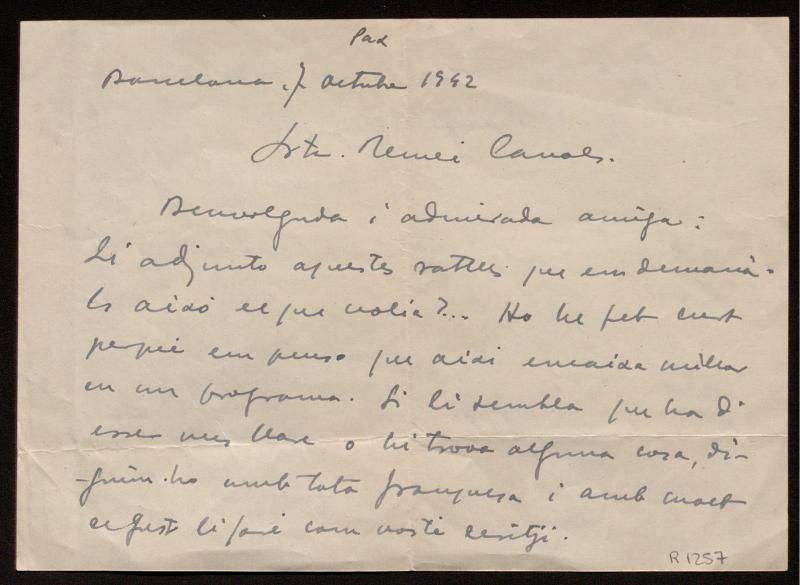 Pax
Barcelona, 7 octubre 1942
Srta. Remei Canals.
Benvolguda i admirada amiga:
Li adjunto aquestes ratlles que em demanà.
Es això el que volia?... Ho he fet curt
perquè em penso que així encaixa millor
en un programa. Si li sembla que ha d'
esser mes llarc o hi trova alguna cosa, di-
-guim-ho amb tota franquesa i amb molt
de gust li faré com vostè desitji.
R 1257